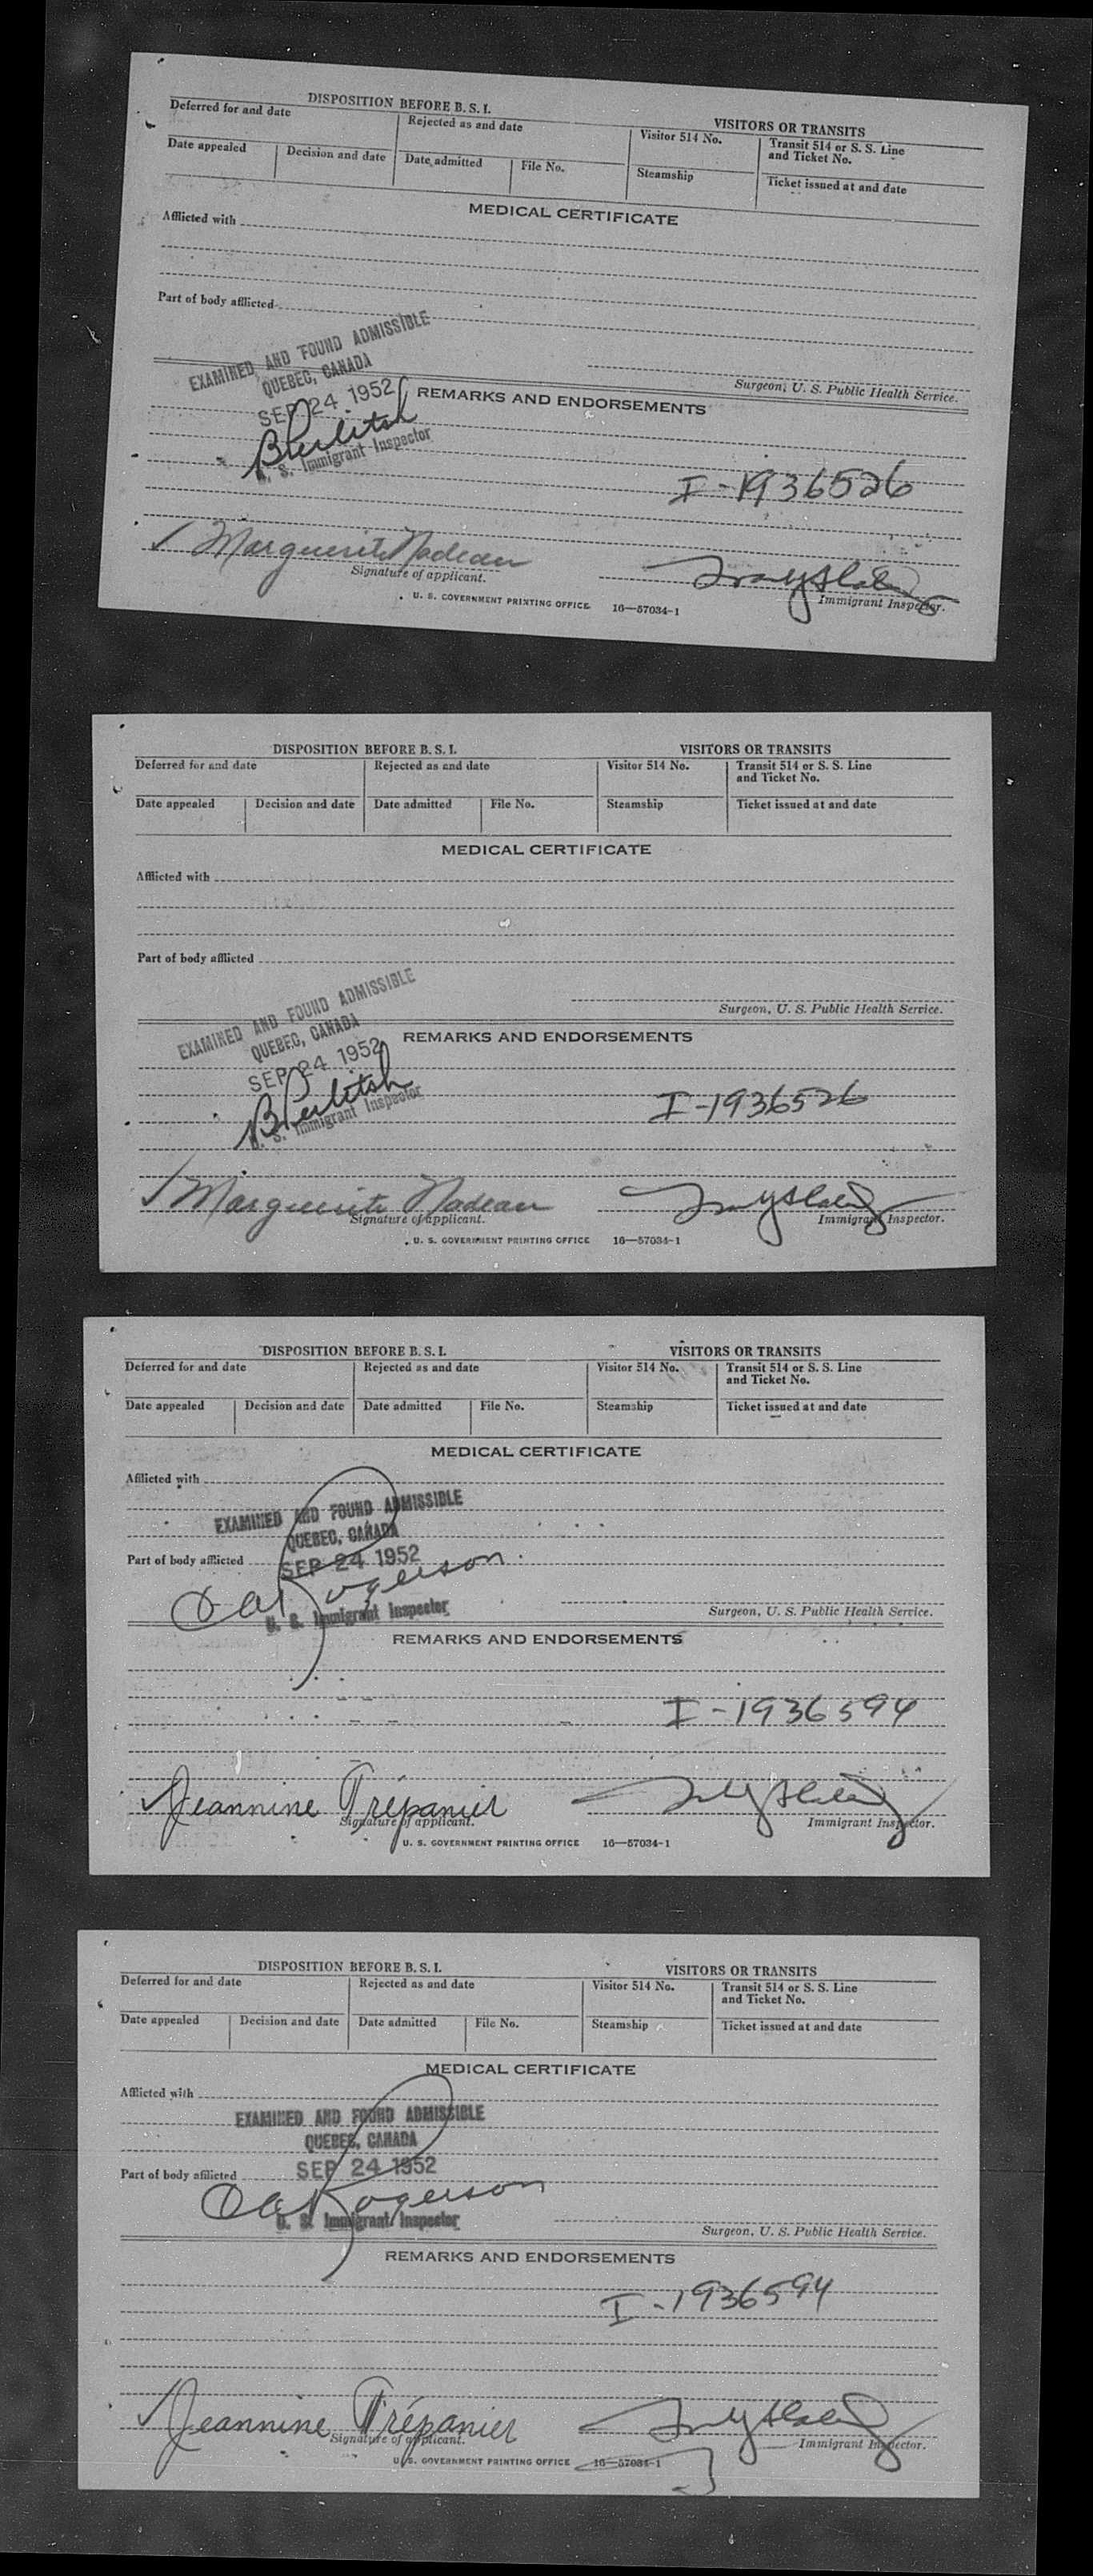 DISPOSITION BEFORE B. S. I. VISITORS OR TRANSITS
Deferred for and date Rejected as and date Visitor 514 No. Transit 514 or S. S. Line and Ticket No.
Date appealed Decision and date Date admitted File No. Steamship Ticket issued at and date
MEDICAL CERTIFICATE
Afflicted with
Part of body afflicted
EXAMINED AND FOUND ADMISSIBLE
QUEBEC, CANADA
SEP 24 1952
Surgeon, U. S. Public Health Service.
REMARKS AND ENDORSEMENTS
U. S. Immigrant Inspector
I-1936526
Marguerite Nadeau
Signature of applicant. Immigrant Inspector.
U. S. GOVERNMENT PRINTING OFFICE 16—57034-1
DISPOSITION BEFORE B. S. I. VISITORS OR TRANSITS
Deferred for and date Rejected as and date Visitor 514 No. Transit 514 or S. S. Line and Ticket No.
Date appealed Decision and date Date admitted File No. Steamship Ticket issued at and date
MEDICAL CERTIFICATE
Afflicted with
Part of body afflicted
EXAMINED AND FOUND ADMISSIBLE
QUEBEC, CANADA
SEP 24 1952
Surgeon, U. S. Public Health Service.
REMARKS AND ENDORSEMENTS
U. S. Immigrant Inspector
I-1936526
Marguerite Nadeau
Signature of applicant. Immigrant Inspector.
U. S. GOVERNMENT PRINTING OFFICE 16—57034-1
DISPOSITION BEFORE B. S. I. VISITORS OR TRANSITS
Deferred for and date Rejected as and date Visitor 514 No. Transit 514 or S. S. Line and Ticket No.
Date appealed Decision and date Date admitted File No. Steamship Ticket issued at and date
MEDICAL CERTIFICATE
Afflicted with
EXAMINED AND FOUND ADMISSIBLE
QUEBEC, CANADA
Part of body afflicted SEP 24 1952
Rogerson
U. S. Immigrant Inspector
Surgeon, U. S. Public Health Service.
REMARKS AND ENDORSEMENTS
I-1936594
Jeannine Trépanier
Signature of applicant. Immigrant Inspector.
U. S. GOVERNMENT PRINTING OFFICE 16—57034-1
DISPOSITION BEFORE B. S. I. VISITORS OR TRANSITS
Deferred for and date Rejected as and date Visitor 514 No. Transit 514 or S. S. Line and Ticket No.
Date appealed Decision and date Date admitted File No. Steamship Ticket issued at and date
MEDICAL CERTIFICATE
Afflicted with
EXAMINED AND FOUND ADMISSIBLE
QUEBEC, CANADA
Part of body afflicted SEP 24 1952
Rogerson
U. S. Immigrant Inspector
Surgeon, U. S. Public Health Service.
REMARKS AND ENDORSEMENTS
I-1936594
Jeannine Trépanier
Signature of applicant. Immigrant Inspector.
U. S. GOVERNMENT PRINTING OFFICE 16—57034-1